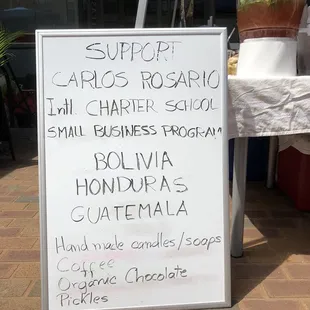 SUPPORT
CARLOS ROSARIO
Intl. CHARTER SCHOOL
SMALL BUSINESS PROGRAM
BOLIVIA
HONDURAS
GUATEMALA
Hand made candles/soaps
Coffee
Organic Chocolate
Pickles